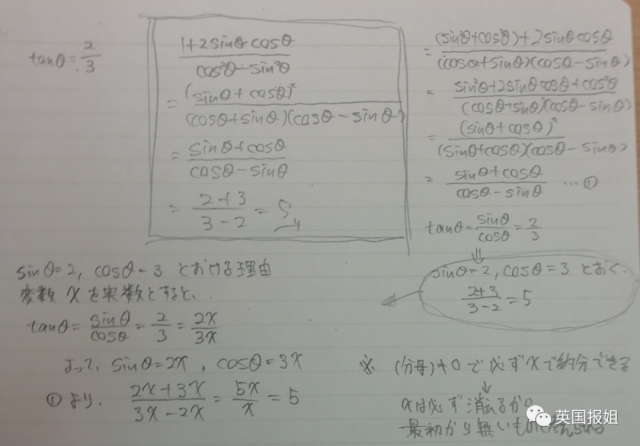 tanθ=2/3
1+2sinθcosθ/cos²θ-sin²θ
=(sinθ+cosθ)²/(cosθ+sinθ)(cosθ-sinθ)
=sinθ+cosθ/cosθ-sinθ
=2+3/3-2=5
=(sin²θ+cos²θ)+2sinθcosθ/(cosθ+sinθ)(cosθ-sinθ)
=sin²θ+2sinθcosθ+cos²θ/(cosθ+sinθ)(cosθ-sinθ)
=(sinθ+cosθ)²/(sinθ+cosθ)(cosθ-sinθ)
=sinθ+cosθ/cosθ-sinθ …①
tanθ=sinθ/cosθ=2/3
⇓
sinθ=2, cosθ=3 とおく
2+3/3-2=5
sinθ=2, cosθ=3 とおける理由
変数 x を実数とすると、
tanθ=sinθ/cosθ=2/3=2x/3x
よって、sinθ=2x, cosθ=3x
①より、2x+3x/3x-2x=5x/x=5
※ (分母)≠0で必ずxで約分できる
↓
xは必ず消えるから
最初から無いもの
英国报姐